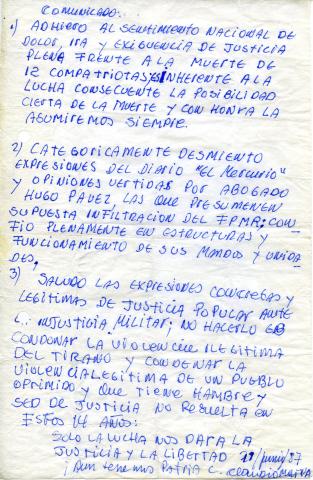 COMUNICADO:
1) ADHIERO AL SENTIMIENTO NACIONAL DE
DOLOR, IRA Y EXIGUENCIA DE JUSTICIA
PLENA FRENTE A LA MUERTE DE
12 COMPATRIOTAS, ES INHERENTE A LA
LUCHA CONSECUENTE LA POSIBILIDAD
CIERTA DE LA MUERTE Y CON HONRA LA
ASUMIREMOS SIEMPRE.
2) CATEGORICAMENTE DESMIENTO
EXPRESIONES DEL DIARIO "EL MERCURIO"
Y OPINIONES VERTIDAS POR ABOGADO
HUGO PAVEZ, LAS QUE PRESUMEN EN
SUPUESTA INFILTRACION DEL FPMR; CON
FIO PLENAMENTE EN ESTRUCTURAS Y
FUNCIONAMIENTO DE SUS MANDOS Y UNIDA
DES.
3) SALUDO LAS EXPRESIONES CONCRETAS Y
LEGITIMAS DE JUSTICIA POPULAR ANTE
INJUSTICIA MILITAR; NO HACERLO ES
CONDONAR LA VIOLENCIA ILEGITIMA
DEL TIRANO Y CONDENAR LA
VIOLENCIA LEGITIMA DE UN PUEBLO
OPRIMIDO Y QUE TIENE HAMBRE Y
SED DE JUSTICIA NO RESUELTA EN
ESTOS 14 AÑOS:
SOLO LA LUCHA NOS DARA LA
JUSTICIA Y LA LIBERTAD
junio/87
¡Aun tenemos Patria C. Claudio